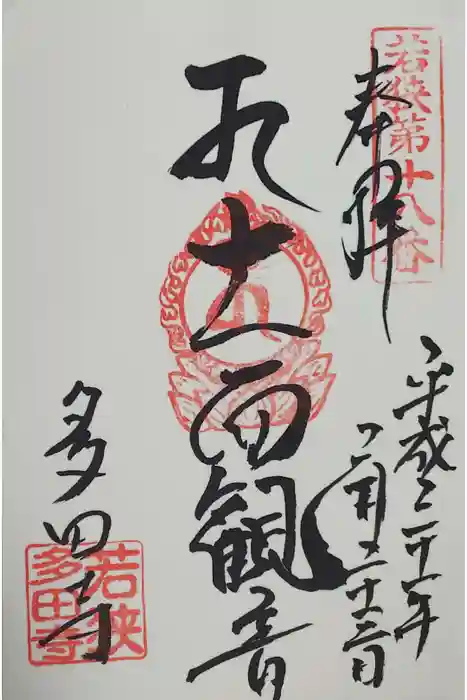 若狭第十八番
奉拝
平成二十一年
月二十二日
十一面観音
多田寺
若狭
多田寺